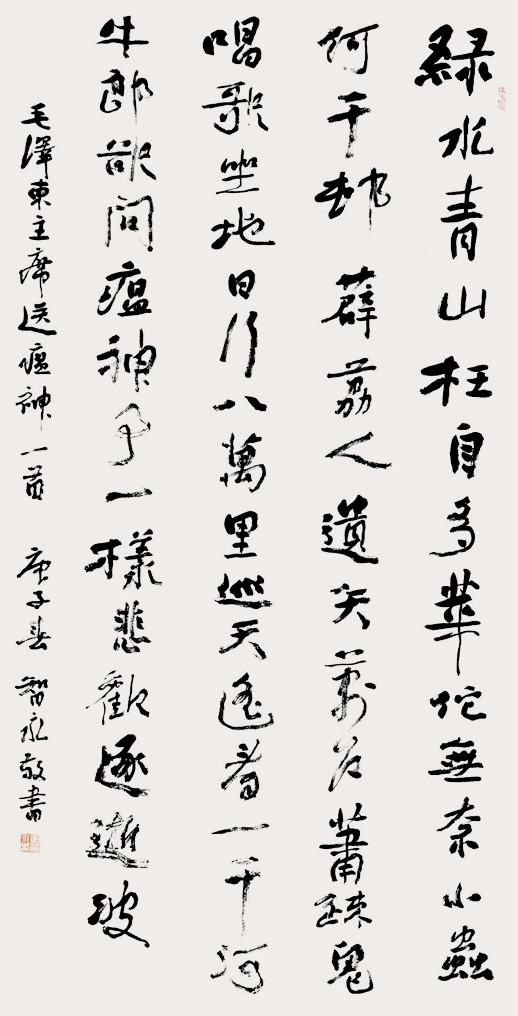 綠水青山枉自多華佗無奈小蟲
何千邨薜荔人遺矢萬戶蕭疏鬼
唱歌坐地日行八萬里巡天遙看一千河
牛郎欲問瘟神事一樣悲歡逐逝波
毛澤東主席送瘟神一首 庚子春 智永敬書